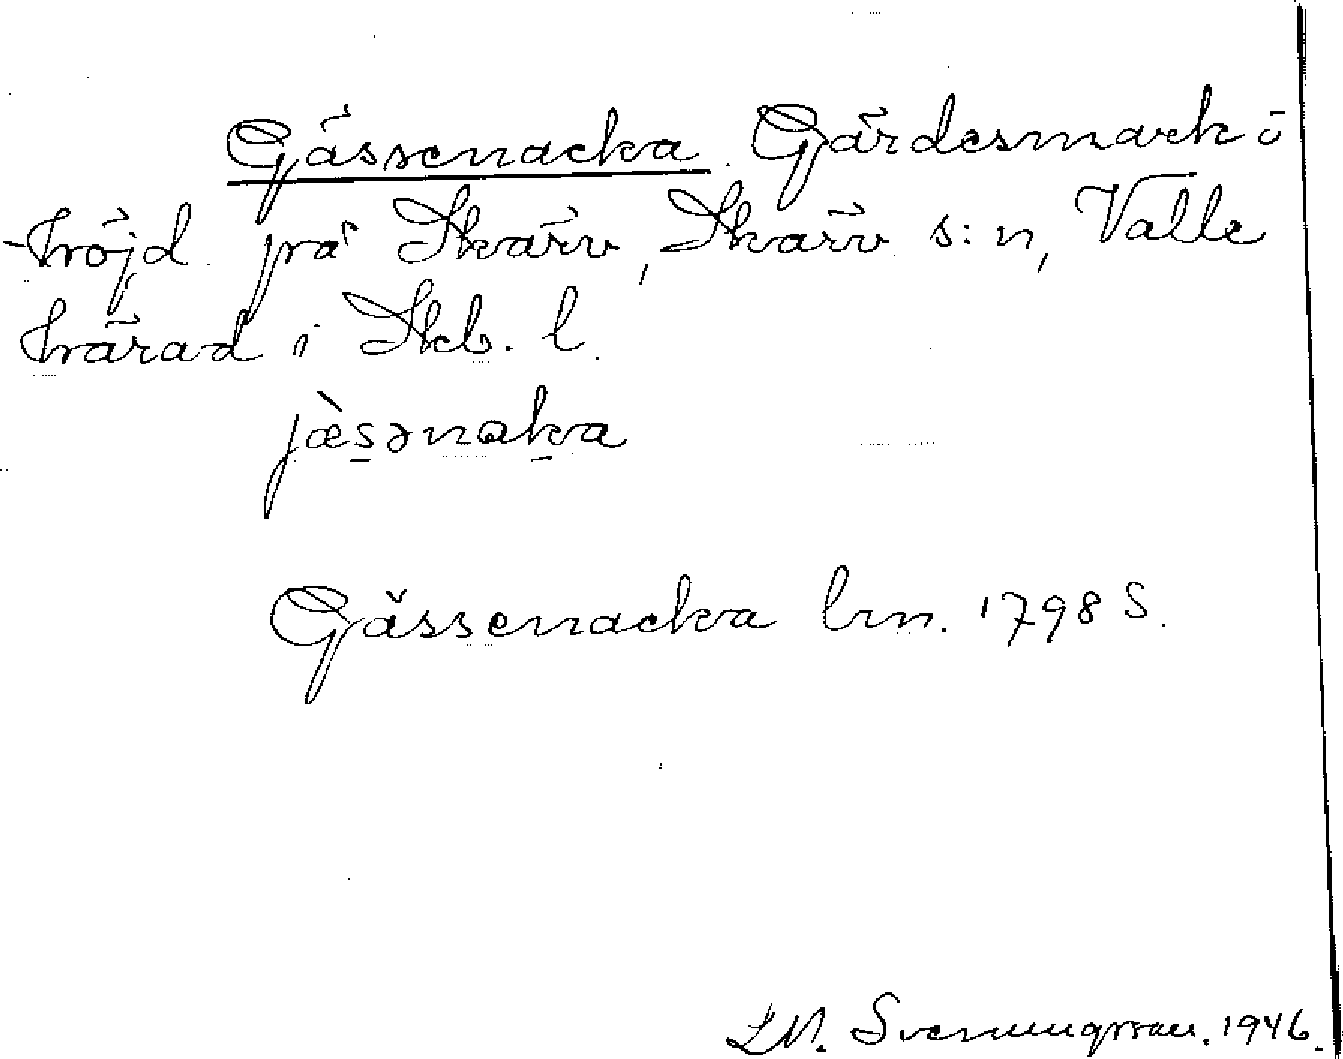 Gässenacka. Gärdesmark i
höjd på Skärv, Skärv s:n, Valle
härad i Skb. l.
jæ̀s̲ənak̲a
Gässenacka lm. 1798 S.
Svenungsson. 1946.